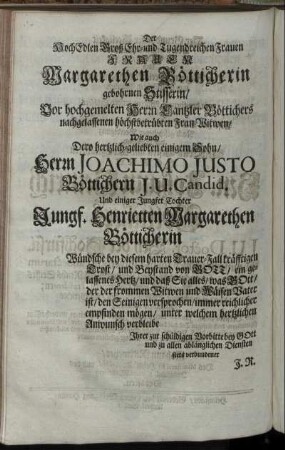 Der
HochEdlen Groß Ehr- und Tugendreichen Frauen
FRAUEN
Margarethen Bötticherin
gebohrnen
Vor hochgemelten Herrn Cantzler Böttichers
nachgelassenen höchstbetrübten Frau Witwen/
Wie auch
Dero hertzlich-geliebten einigem Sohn/
Herrn JOACHIMO JUSTO
Böttichern J. U. Candid,
Und einiger Jungfer Tochter
Jungf. Henrietten Margarethen
Bötticherin
Wündsche bey diesem harten Trauer-Fall kräfftigen
Trost/ und Beystand von GOTT/ ein ge-
lassenes Hertz/ und daß Sie alles/ was GOtt/
der der frommen Witwen und Wäisen Vater
ist/ den Seinigen versprochen/ immer reichlicher
empfinden mögen/ unter welchem hertzlichen
Anwunsch verbleibe
Ihrer zur schüldigen Vorbitte bey GOtt
und zu allen anständigen Diensten
stets verbundener
J. R.